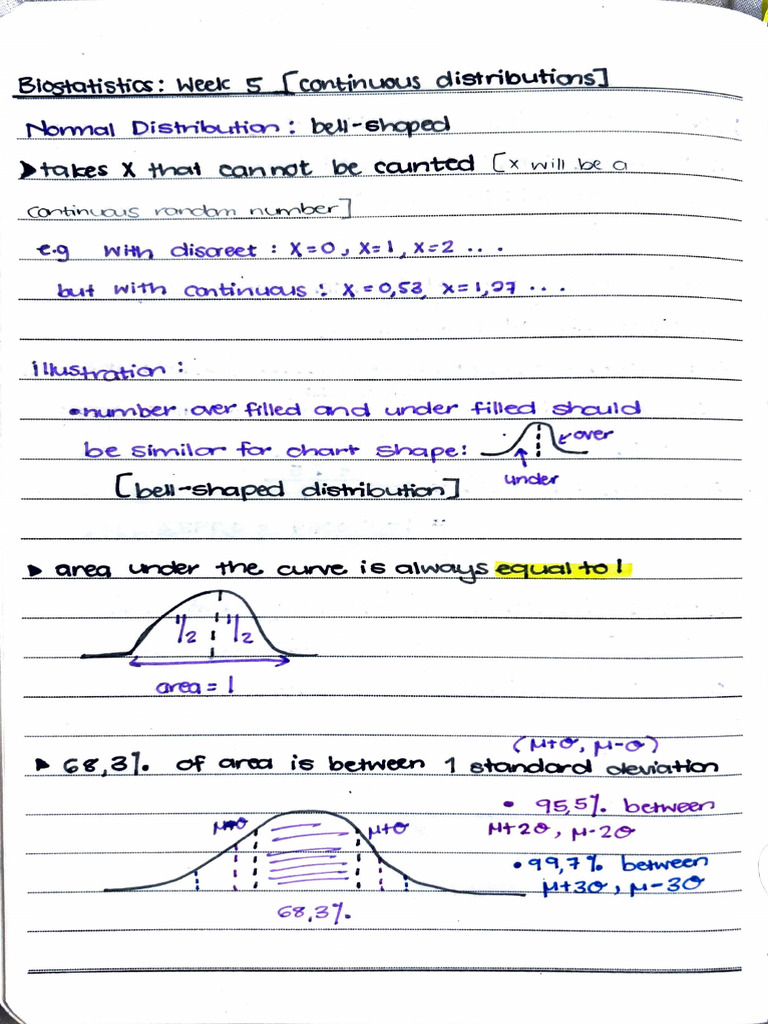 Biostatistics: Week 5 [continuous distributions]
Normal Distribution: bell-shaped
➤takes X that cannot be counted [x will be a
continuous random number]
e.g with discreet : X=0, X=1, X=2 ...
but with continuous : X=0,53, X=1,27 ...
illustration :
•number over filled and under filled should
be similar for chart shape:
over
under
[bell-shaped distribution]
➤ area under the curve is always equal to 1
1/2 1/2
area = 1
(μ+σ, μ-σ)
➤ 68,3% of area is between 1 standard deviation
• 95,5% between
μ+2σ, μ-2σ
μ+σ
• 99,7% between
μ+3σ, μ-3σ
68,3%